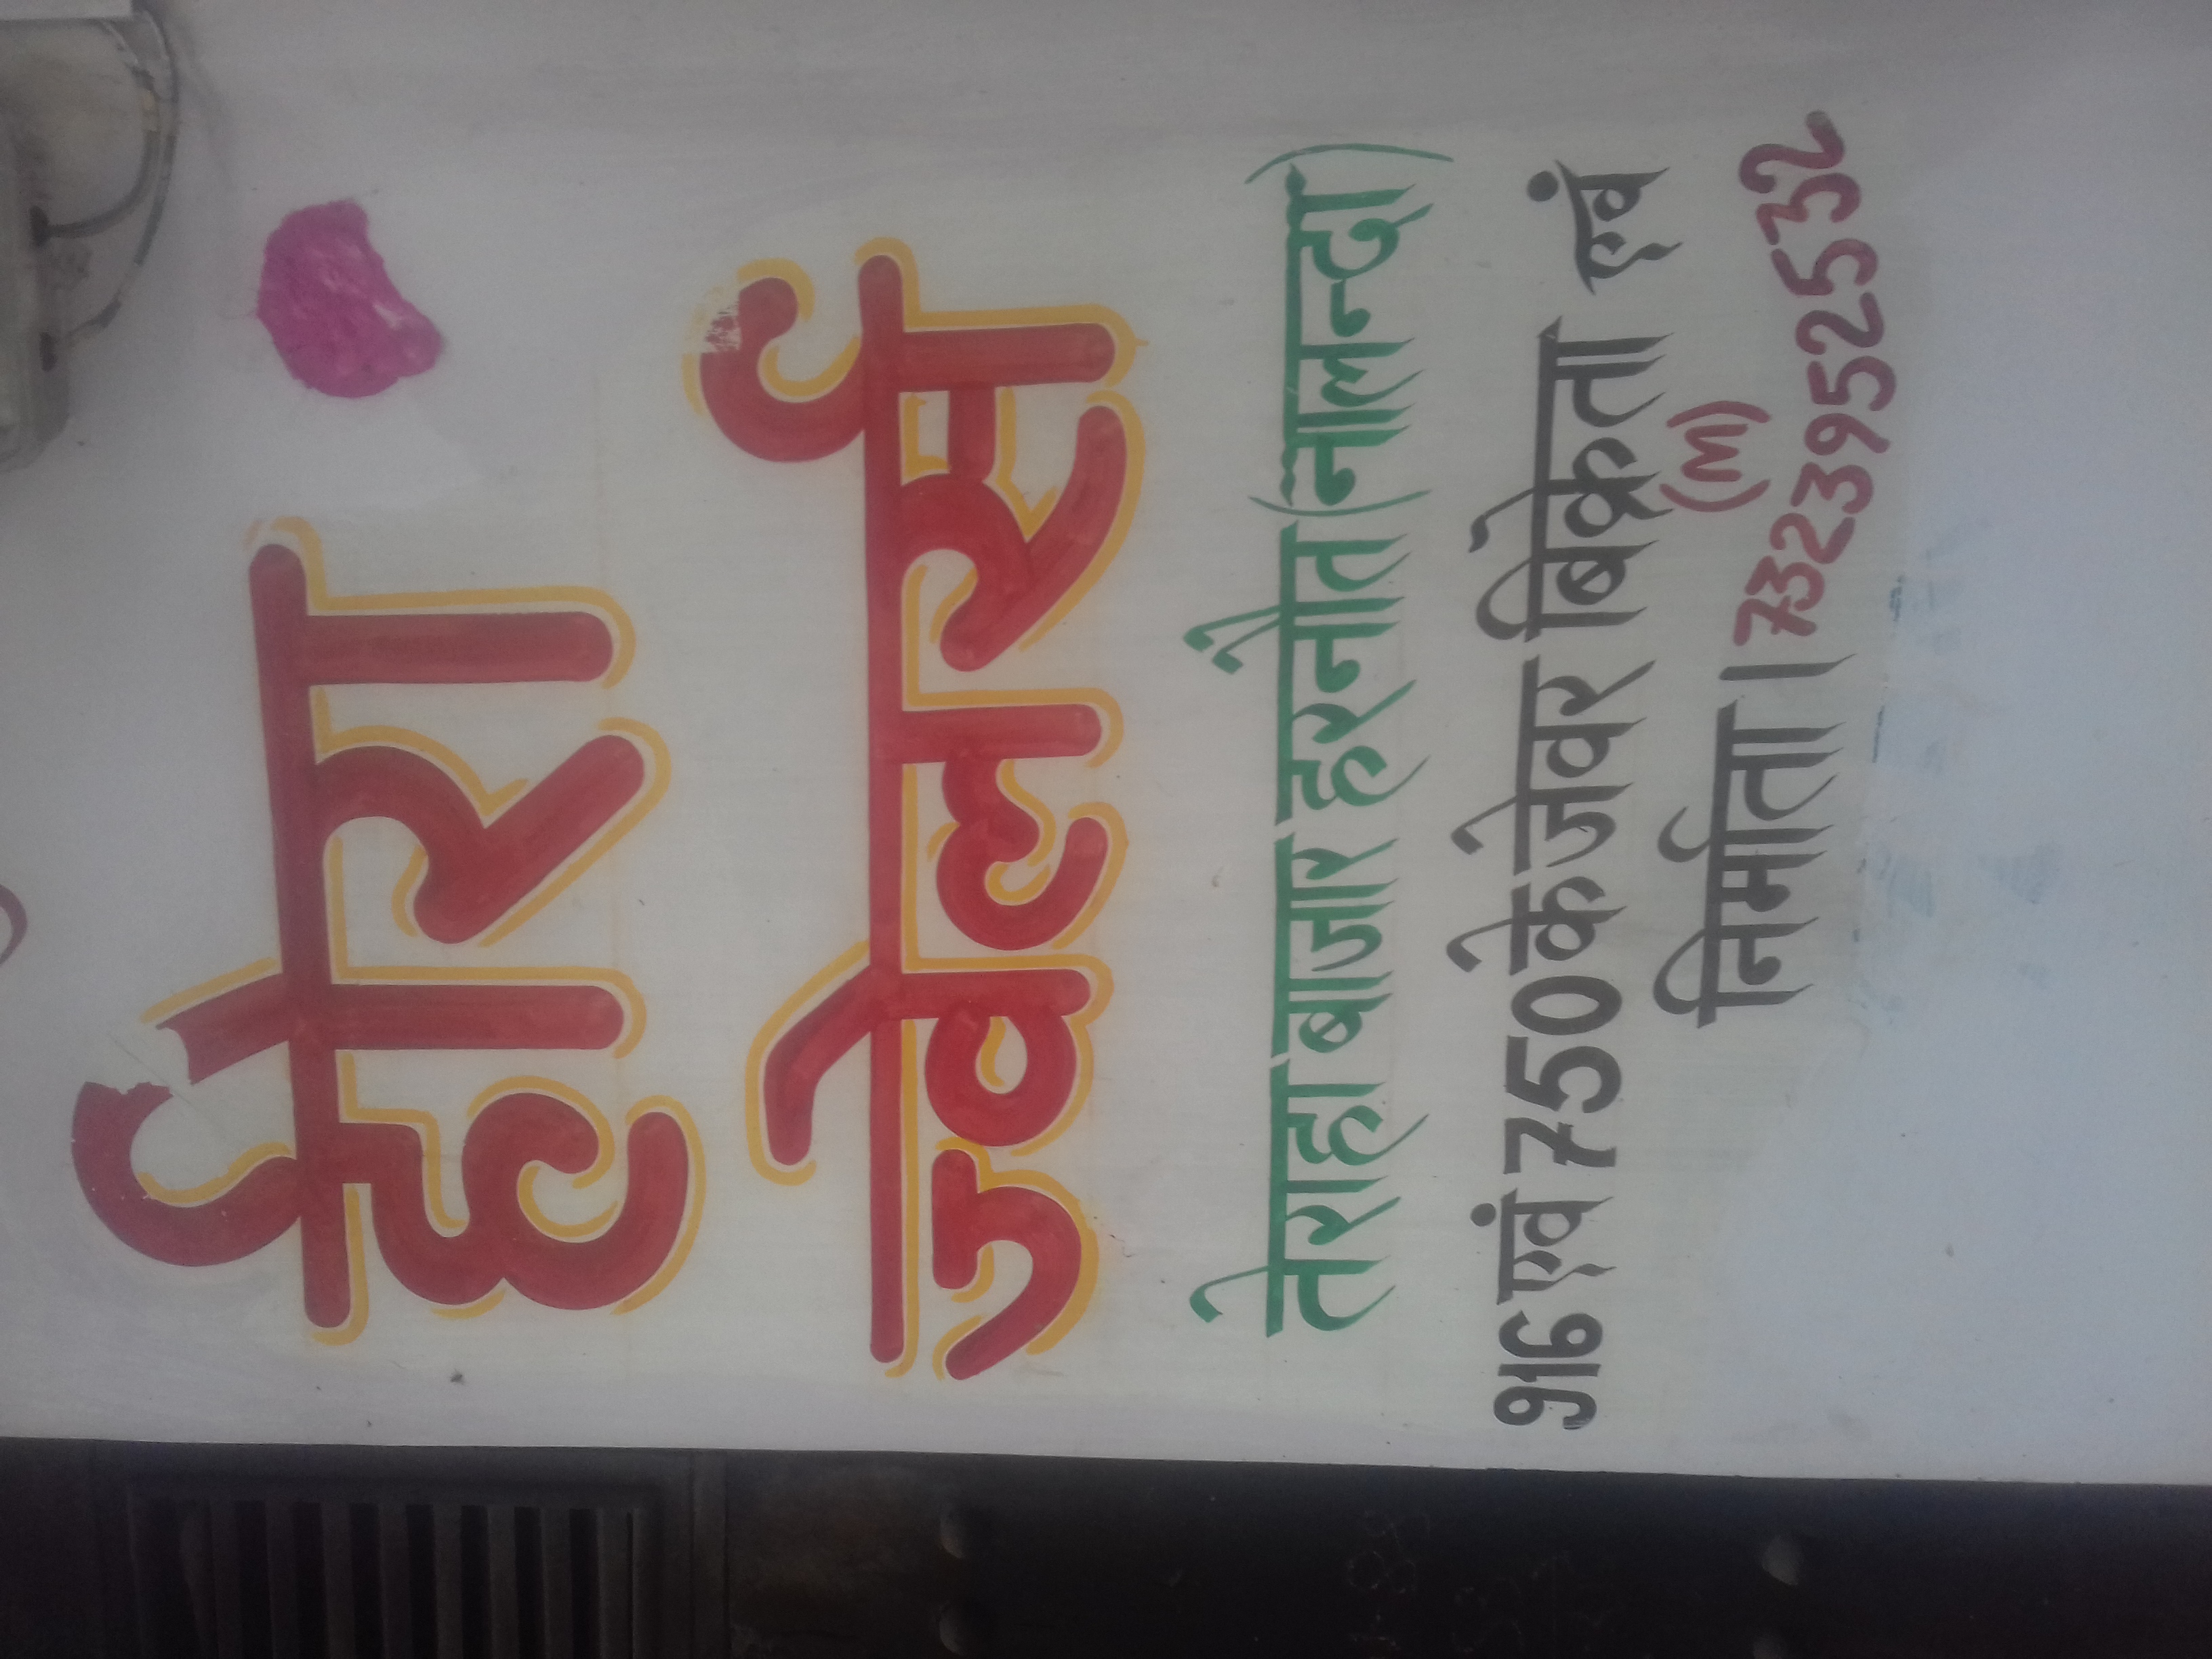 हीरा
ज्वेलर्स
तेराहा बाजार हरनौत (नालन्दा)
916 एवं 750 के जेवर बिक्रेता एवं
निर्माता।
(M)
7323952532